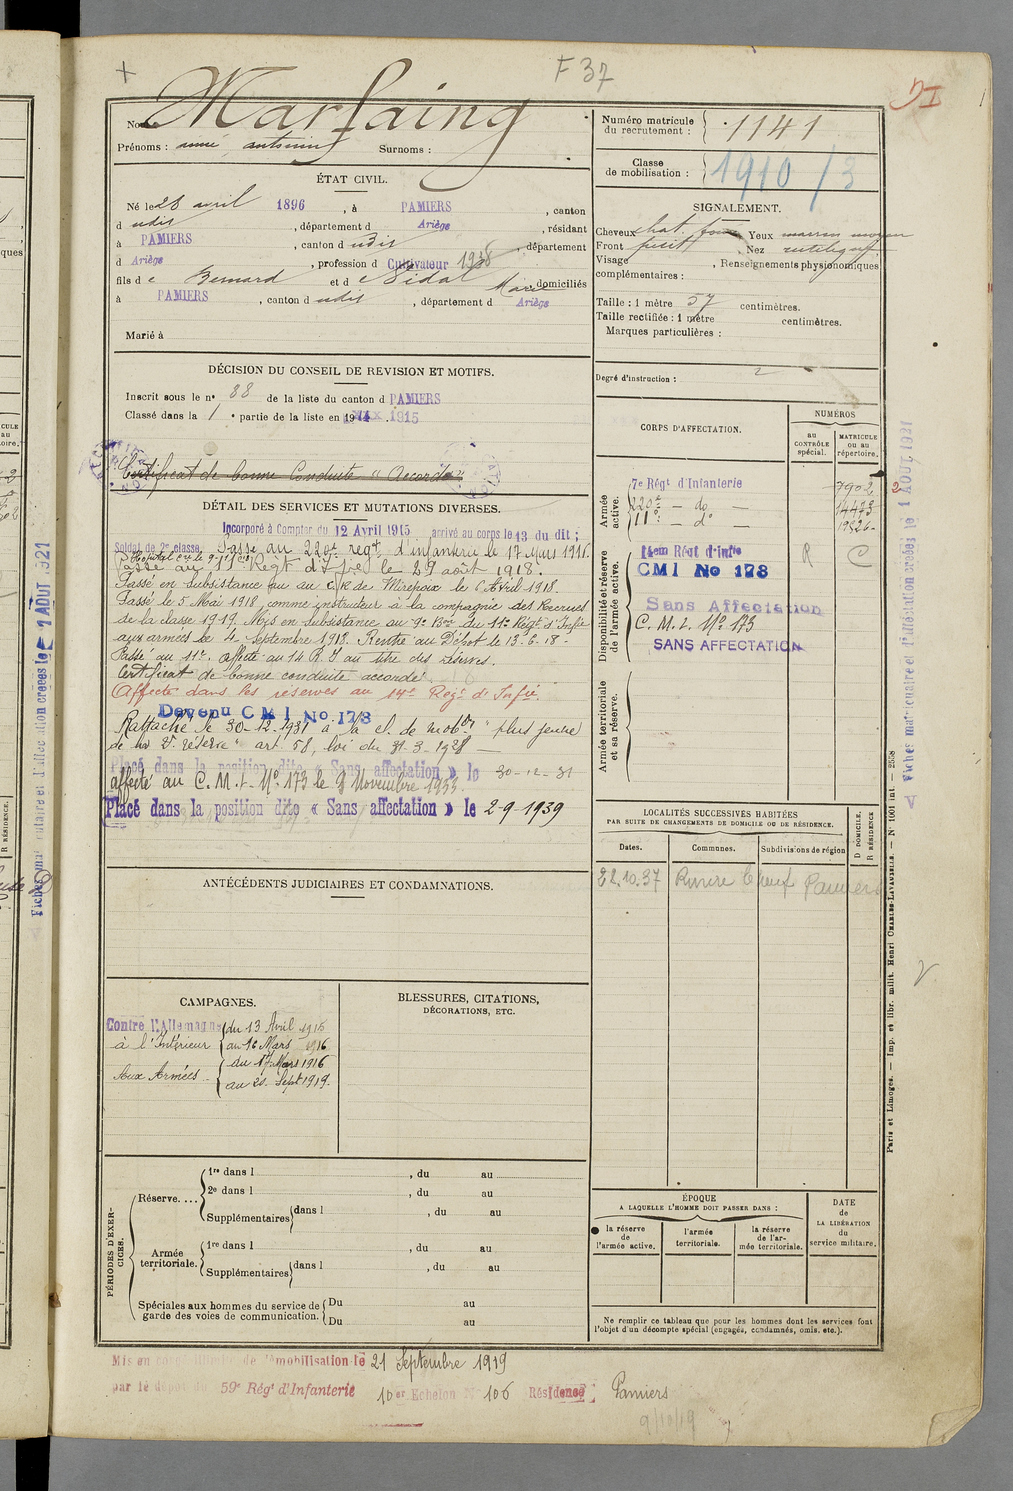 F 37
Marfaing
Nom
Prénoms : aimé, antonin Surnoms :
Numéro matricule du recrutement : 1141
Classe de mobilisation : 1910 / 3
ÉTAT CIVIL.
Né le 28 avril 1896, à PAMIERS, canton
d udis, département d Ariège, résidant
à PAMIERS, canton d udis, département
d Ariège, profession d Cultivateur
fils d e Bernard et d e Vidal Marie domiciliés
à PAMIERS, canton d udis, département d Ariège
Marié à
SIGNALEMENT.
Cheveux chat. Yeux marron moyen
Front petit Nez rectiligne
Visage , Renseignements physionomiques
complémentaires :
Taille : 1 mètre 57 centimètres.
Taille rectifiée : 1 mètre centimètres.
Marques particulières :
Degré d'instruction : 2
DÉCISION DU CONSEIL DE REVISION ET MOTIFS.
Inscrit sous le n° 88 de la liste du canton d PAMIERS
Classé dans la 1 e partie de la liste en 1915
Certificat de bonne Conduite "Accordé"
DÉTAIL DES SERVICES ET MUTATIONS DIVERSES.
Incorporé à Compter du 12 Avril 1915 arrivé au corps le 13 du dit ;
Soldat de 2e classe, Passé au 220e regt d'infanterie le 17 mars 1916.
Passé au Régt d'Ifrie le 29 août 1918.
Passé en subsistance au de Mirepoix le 6 Avril 1918.
Passé le 5 Mai 1918, comme instructeur à la compagnie des Recrues
de la classe 1919. Mis en subsistance au 9e Bon du 11e Régt d'Infie
aux armées le 4 Septembre 1918. Rentré au Dépot le 13-6-18-
Passé au 11e. affecté au 14 R.I au titre des réserves.
Certificat de bonne conduite accordé.
Affecté dans les réserves au 14e Régt d'Infie.
Devenu CMI No 173
Rattaché le 30-12-1931 à la cl. de mobon "plus jeune
de la 2e réserve" art. 58, loi du 31-3-1928
Placé dans la position dite « Sans affectation » le 30-12-31
affecté au C.M.I. No 173 le 8 Novembre 1933
Placé dans la position dite « Sans affectation » le 2-9-1939
ANTÉCÉDENTS JUDICIAIRES ET CONDAMNATIONS.
CAMPAGNES.
Contre l'Allemagne
à l'Intérieur du 13 Avril 1915
au 16 Mars 1916
Aux Armées du 17 Mars 1916
au 20 Sept 1919.
BLESSURES, CITATIONS,
DÉCORATIONS, ETC.
CORPS D'AFFECTATION.
NUMÉROS
au CONTRÔLE spécial.
MATRICULE ou au répertoire.
Armée active.
7e Régt d'Infanterie 7902
220e — do — 14473
11e — do —
Disponibilité et réserve de l'armée active.
14em Régt d'infie R C
CMI No 173
Sans Affectation
C.M.I. No 173
SANS AFFECTATION
Armée territoriale et sa réserve.
LOCALITÉS SUCCESSIVES HABITÉES
PAR SUITE DE CHANGEMENTS DE DOMICILE OU DE RÉSIDENCE.
Dates. Communes. Subdivisions de région
D DOMICILE. R RÉSIDENCE
22.10.37 Pamiers
PÉRIODES D'EXERCICES.
Réserve....
1re dans l , du au
2e dans l , du au
Supplémentaires dans l , du au
Armée territoriale.
1re dans l , du au
Supplémentaires dans l , du au
Spéciales aux hommes du service de garde des voies de communication.
Du au
Du au
ÉPOQUE
A LAQUELLE L'HOMME DOIT PASSER DANS :
la réserve de l'armée active.
l'armée territoriale.
la réserve de l'armée territoriale.
DATE de LA LIBÉRATION du service militaire.
Ne remplir ce tableau que pour les hommes dont les services font
l'objet d'un décompte spécial (engagés, condamnés, omis, etc.).
Mis en congé illimité de démobilisation le 21 Septembre 1919
par le dépot du 59e Régt d'Infanterie 10er Echelon N° 106 Résidence : Pamiers
9/10/19
Paris et Limoges. — Imp. et libr. milit. Henri CHARLES-LAVAUZELLE. — N° 1001 int. — 2558
Fiches matriculaire et d'affectation créées le 1 AOUT 1921